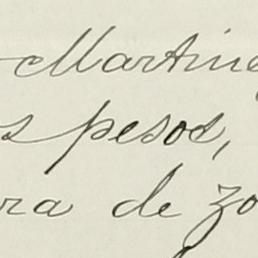 Martine
s pesos,
ra de zo